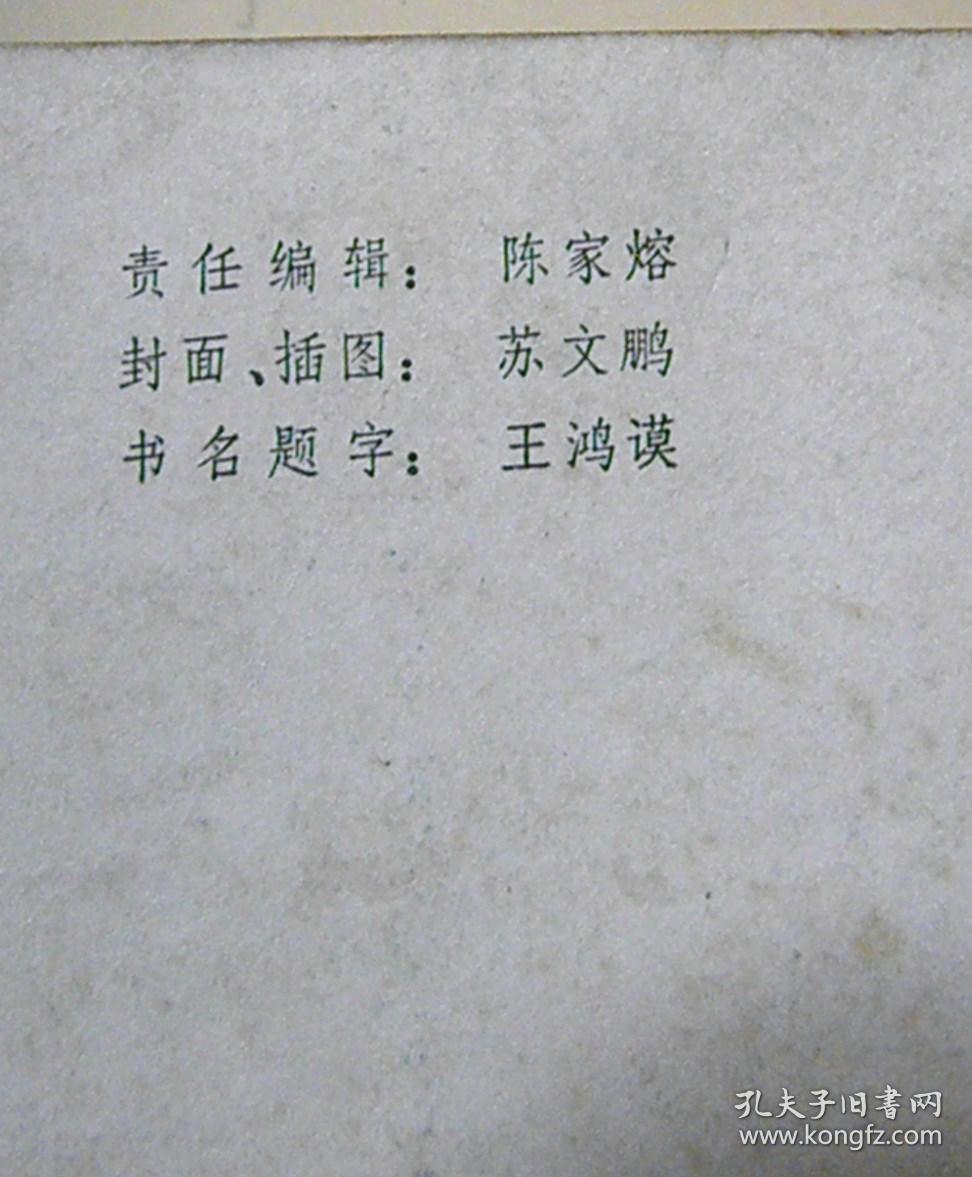 责任编辑：陈家熔
封面、插图：苏文鹏
书名题字：王鸿谟
孔夫子旧書网
www.kongfz.com